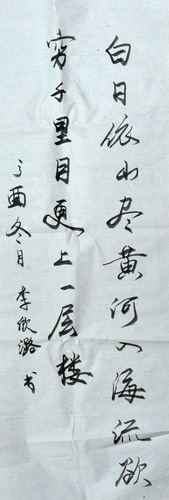 白日依山尽黄河入海流欲
穷千里目更上一层楼
丁酉冬月 李欣潞书